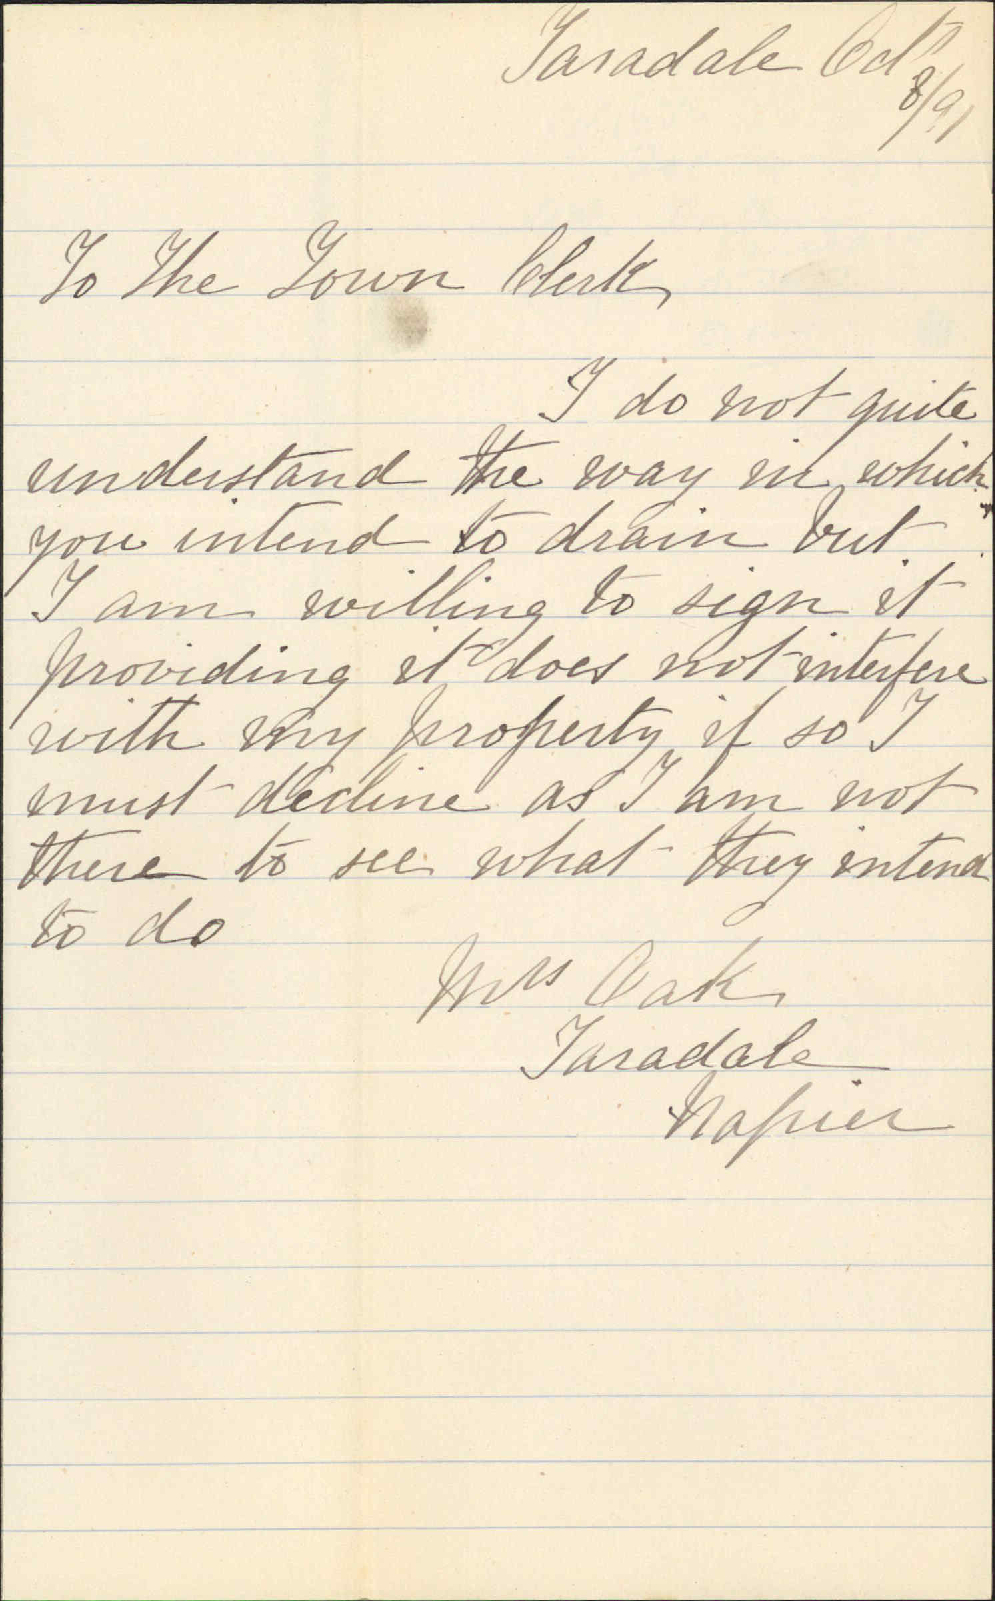 Taradale Oct
8/91
To The Town Clerk
I do not quite
understand the way in which
you intend to drain but
I am willing to sign it
providing it does not interfere
with my property if so I
must decline as I am not
there to see what they intend
to do
Mrs Oak
Taradale
Napier